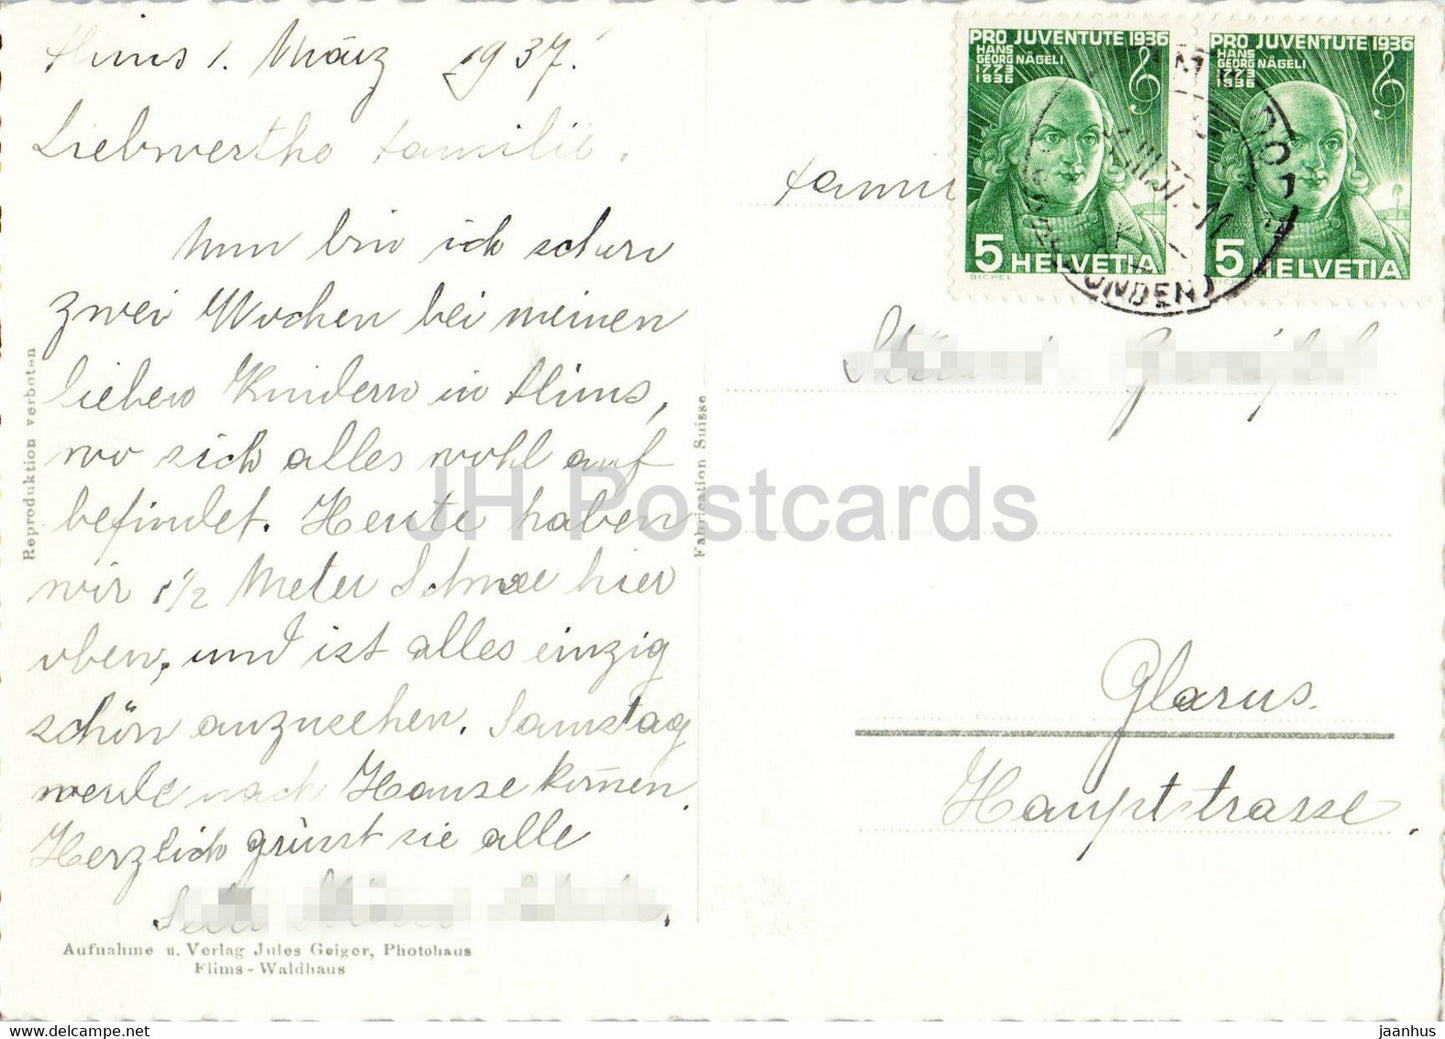 Flims 1. März 1937.
Liebwertho Familie.
Nun bin ich schon
zwei Wochen bei meinen
lieben Kindern in Flims,
wo sich alles wohl auf
befindet. Heute haben
wir 1 1/2 Meter Schnee hier
oben, und ist alles einzig
schön anzusehen. Samstag
werde nach Hause komen.
Herzlich grüsst sie alle
Aufnahme u. Verlag Jules Geiger, Photohaus
Flims - Waldhaus
Reproduktion verboten
Fabrication Suisse
JH Postcards
PRO JUVENTUTE 1936
HANS
GEORG NÄGELI
1773
1836
5 HELVETIA
BICKEL
PRO JUVENTUTE 1936
HANS
GEORG NÄGELI
1773
1836
5 HELVETIA
BICKEL
Famil
Glarus.
Hauptstrasse.
www.hippostcard.com
jaanhus